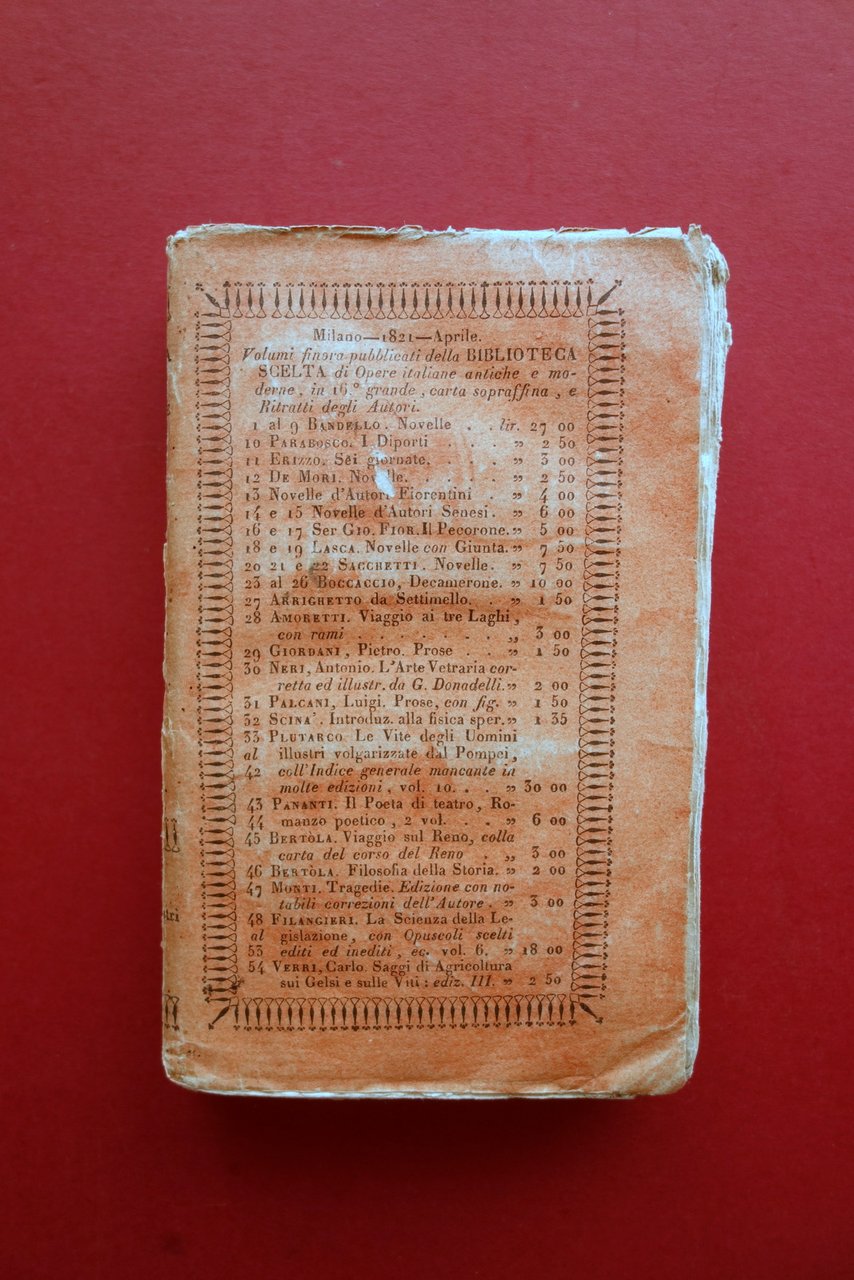 Milano—1821—Aprile.
Volumi finora pubblicati della BIBLIOTECA
SCELTA di Opere italiane antiche e mo-
derne, in 16.° grande, carta sopraffina, e
Ritratti degli Autori.
1 al 9 BANDELLO. Novelle . . lir. 27 00
10 PARABOSCO. I Diporti . . . . „ 2 50
11 ERIZZO. Sei giornate. . . . „ 3 00
12 DE MORI. Novelle. . . . . . „ 2 50
13 Novelle d'Autori Fiorentini . „ 4 00
14 e 15 Novelle d'Autori Senesi. . „ 6 00
16 e 17 Ser GIO. FIOR. Il Pecorone. „ 5 00
18 e 19 LASCA. Novelle con Giunta. „ 7 50
20 21 e 22 SACCHETTI. Novelle. „ 7 50
23 al 26 BOCCACCIO, Decamerone. „ 10 00
27 ARRIGHETTO da Settimello. . „ 1 50
28 AMORETTI. Viaggio ai tre Laghi,
con rami . . . . . . . „ 3 00
29 GIORDANI, Pietro. Prose . . „ 1 50
30 NERI, Antonio. L'Arte Vetraria cor-
retta ed illustr. da G. Donadelli. „ 2 00
31 PALCANI, Luigi. Prose, con fig. „ 1 50
32 SCINA'. Introduz. alla fisica sper. „ 1 35
33 PLUTARCO. Le Vite degli Uomini
al illustri volgarizzate dal Pompei,
42 coll'Indice generale mancante in
molte edizioni, vol. 10. . . „ 30 00
43 PANANTI. Il Poeta di teatro, Ro-
44 manzo poetico, 2 vol. . . „ 6 00
45 BERTÒLA. Viaggio sul Reno, colla
carta del corso del Reno . „ 3 00
46 BERTÒLA. Filosofia della Storia. „ 2 00
47 MONTI. Tragedie. Edizione con no-
tabili correzioni dell'Autore. „ 3 00
48 FILANGIERI. La Scienza della Le-
al gislazione, con Opuscoli scelti
53 editi ed inediti, ec. vol. 6. „ 18 00
54 VERRI, Carlo. Saggi di Agricoltura
sui Gelsi e sulle Viti: ediz. III. „ 2 50